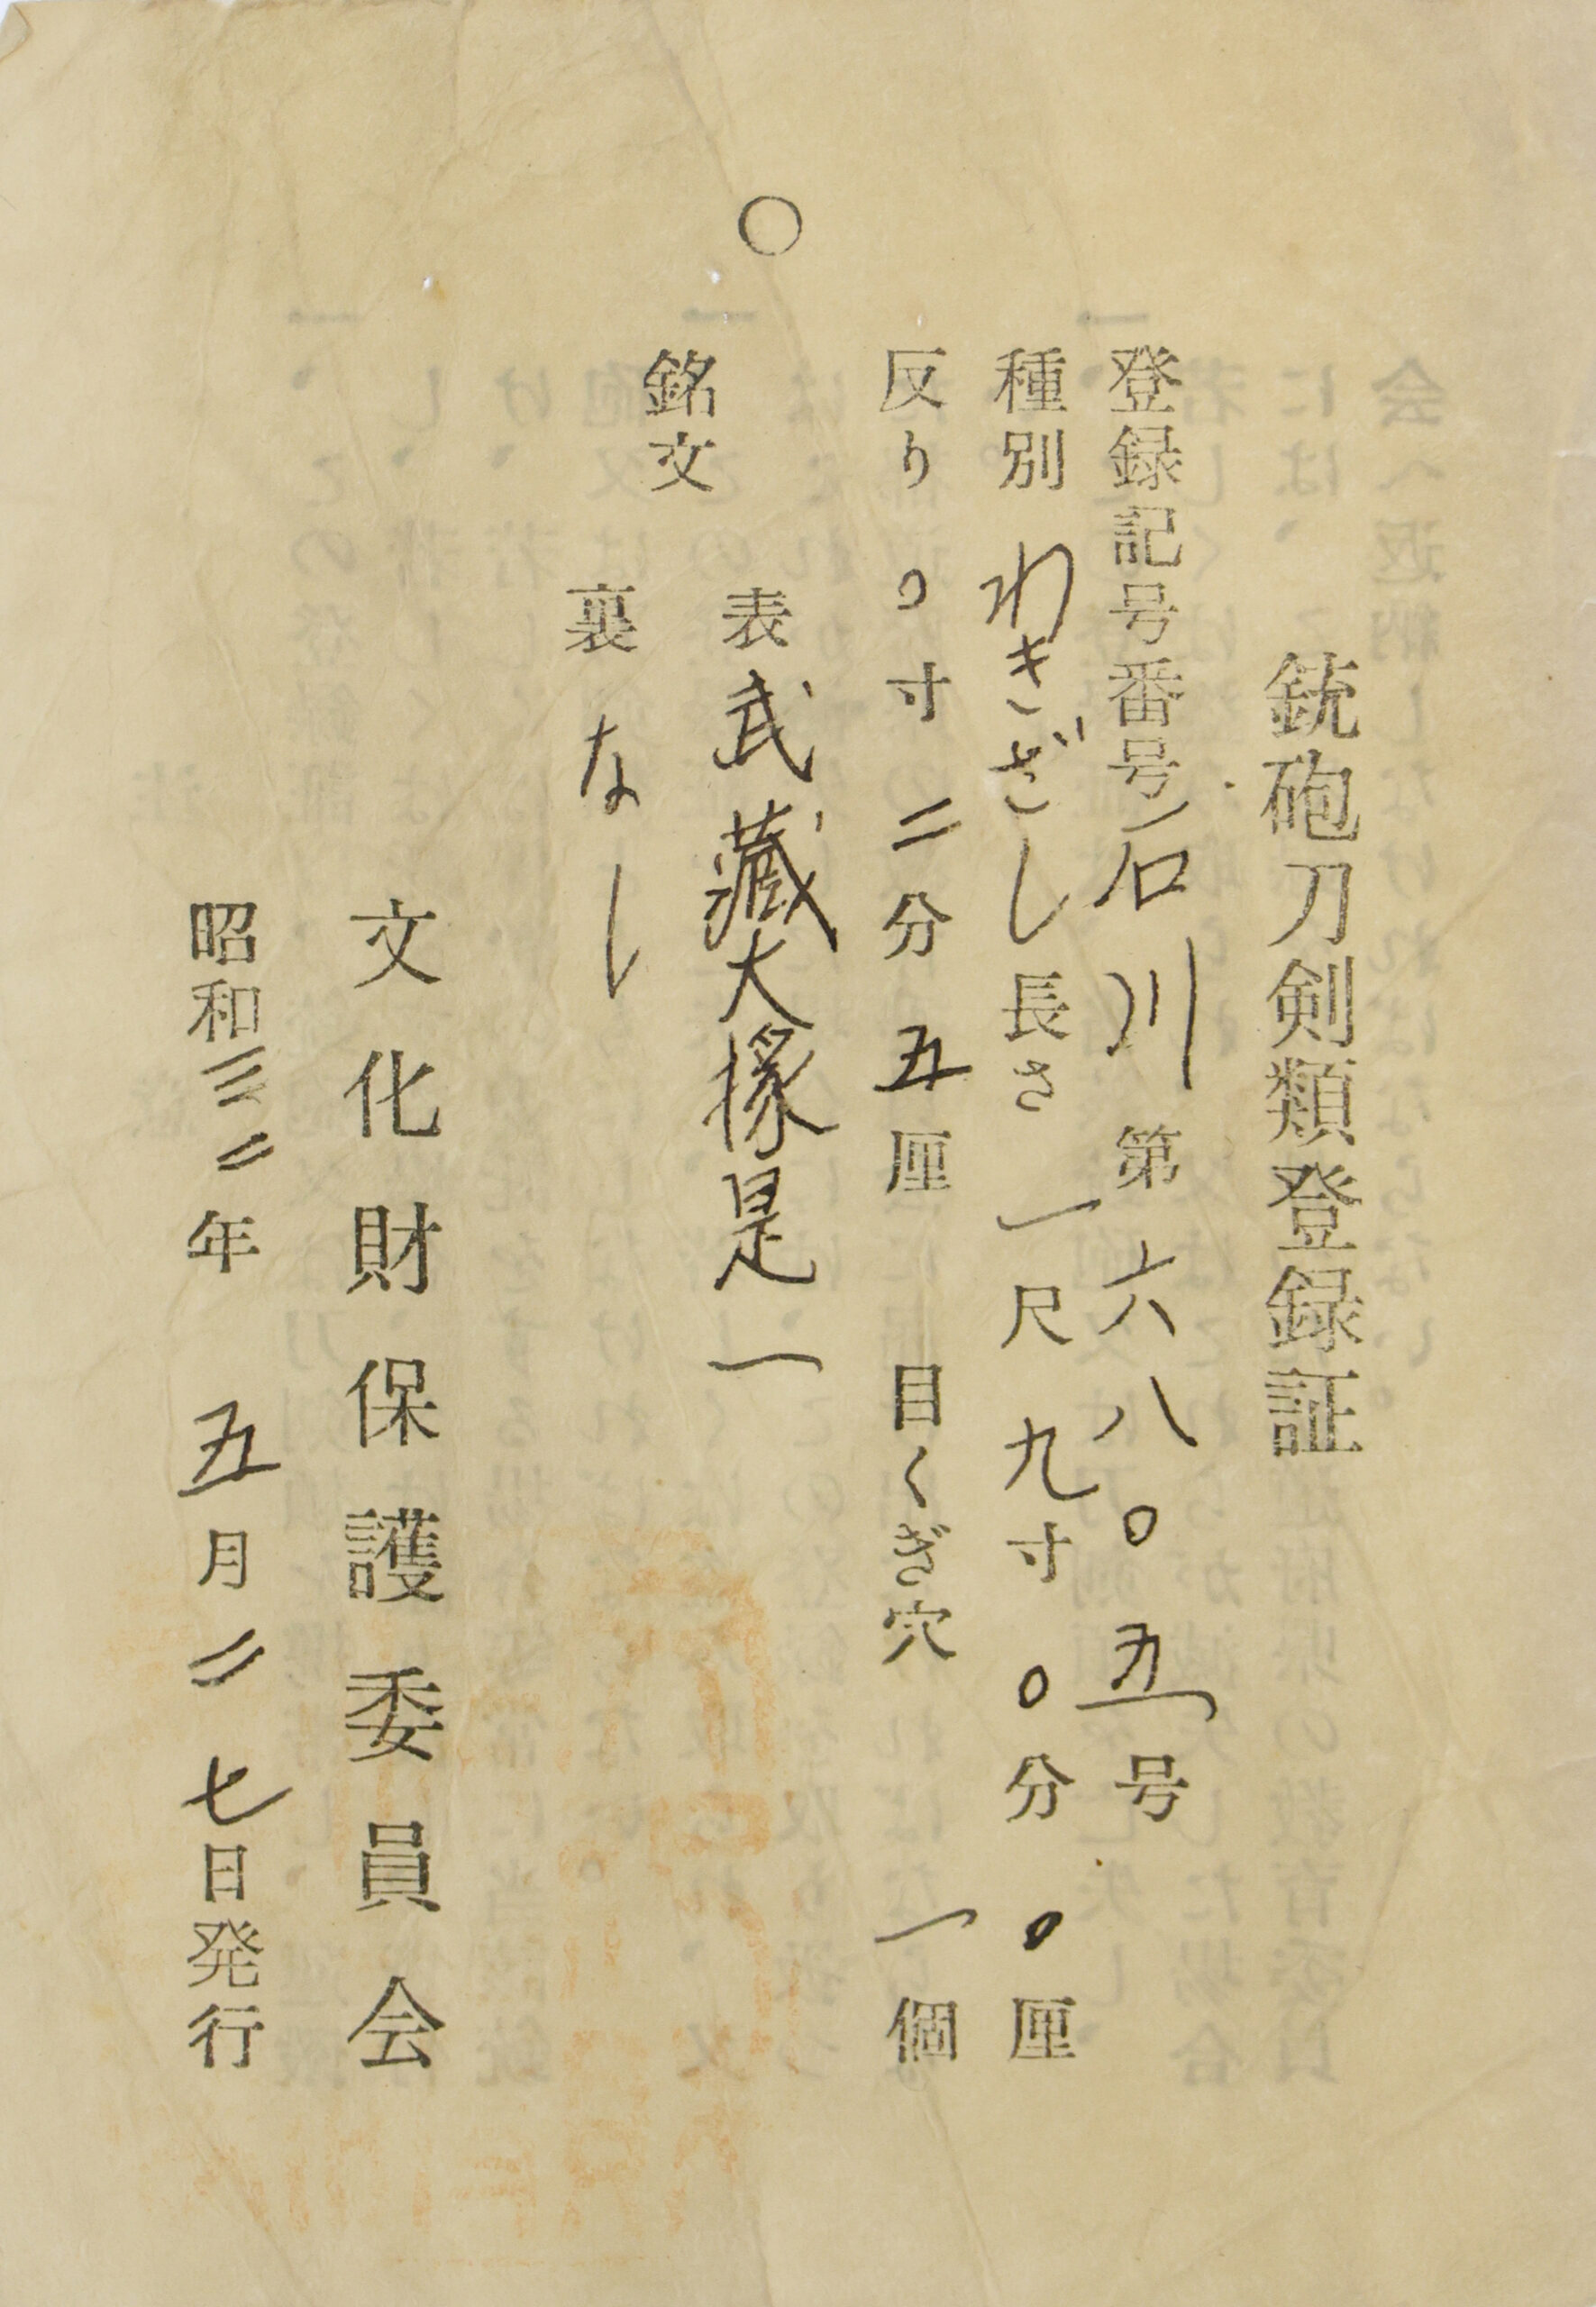 銃砲刀剣類登録証
登録記号番号 石川 第六八〇五号
種別 わきざし 長さ 一尺九寸〇分〇厘
反り 〇寸二分五厘 目くぎ穴 一個
〇
銘文
表 武藏大掾是一
裏 なし
文化財保護委員会
昭和三二年 五月二七日発行